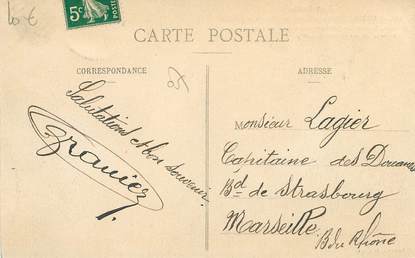 10 €
5c
CARTE POSTALE
CORRESPONDANCE
ADRESSE
Salutations et bon souvenir
Monsieur Lagier
Capitaine des Douanes
Bd de Strasbourg
Marseille
B. du Rhône